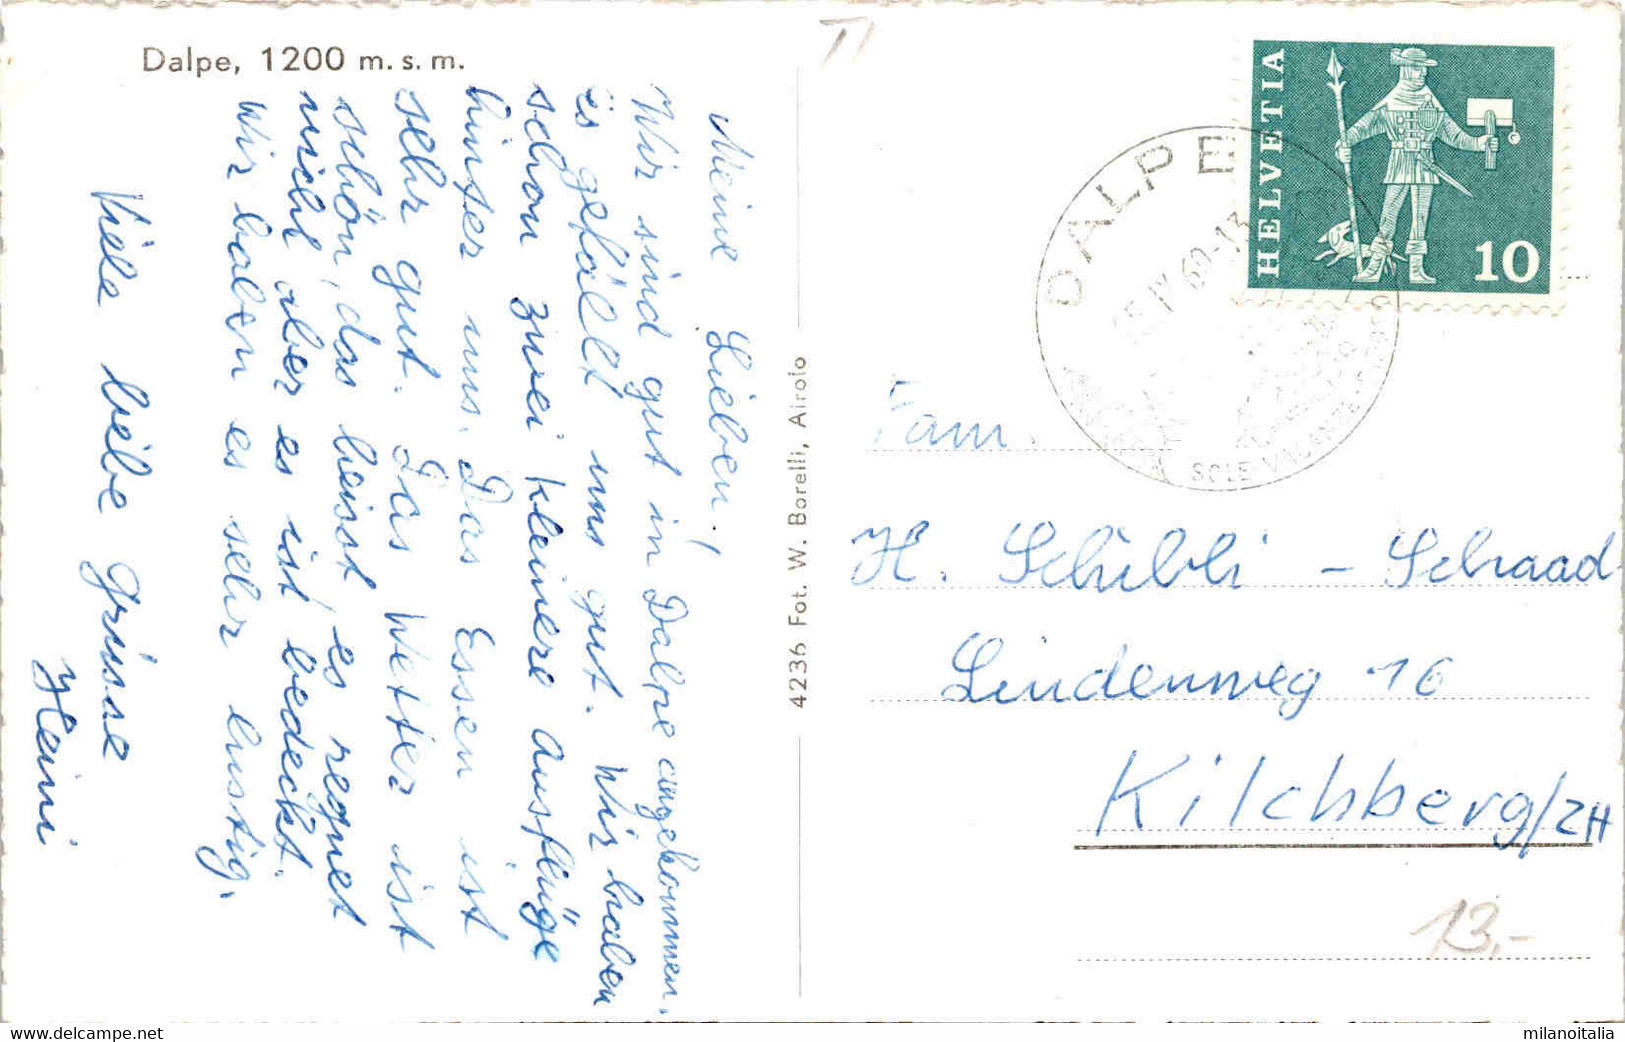 Dalpe, 1200 m. s. m.
Meine Lieben!
Wir sind gut in Dalpe angekommen.
es gefällt uns gut. Wir haben
schon zwei kleinere Ausflüge
hinter uns. Das Essen ist
sehr gut. Das Wetter ist
schön, das heisst es regnet
nicht aber es ist bedeckt.
Wir haben es sehr lustig.
Viele liebe Grüsse
Heini
4236 Fot. W. Borelli, Airolo
TI
HELVETIA
10
DALPE
IV 60-13
SOLE-VACANZE
Fam.
H. Schübli - Schaad
Lindenweg 16
Kilchberg/ZH
13,-
www.delcampe.net
milanoitalia